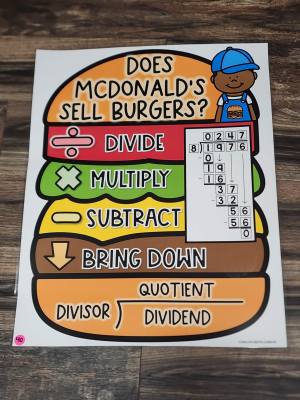 DOES
MCDONALD'S
SELL BURGERS?
÷ DIVIDE
× MULTIPLY
− SUBTRACT
↓ BRING DOWN
0247
8)1976
0
19
16
37
32
56
56
0
QUOTIENT
DIVISOR
DIVIDEND
40